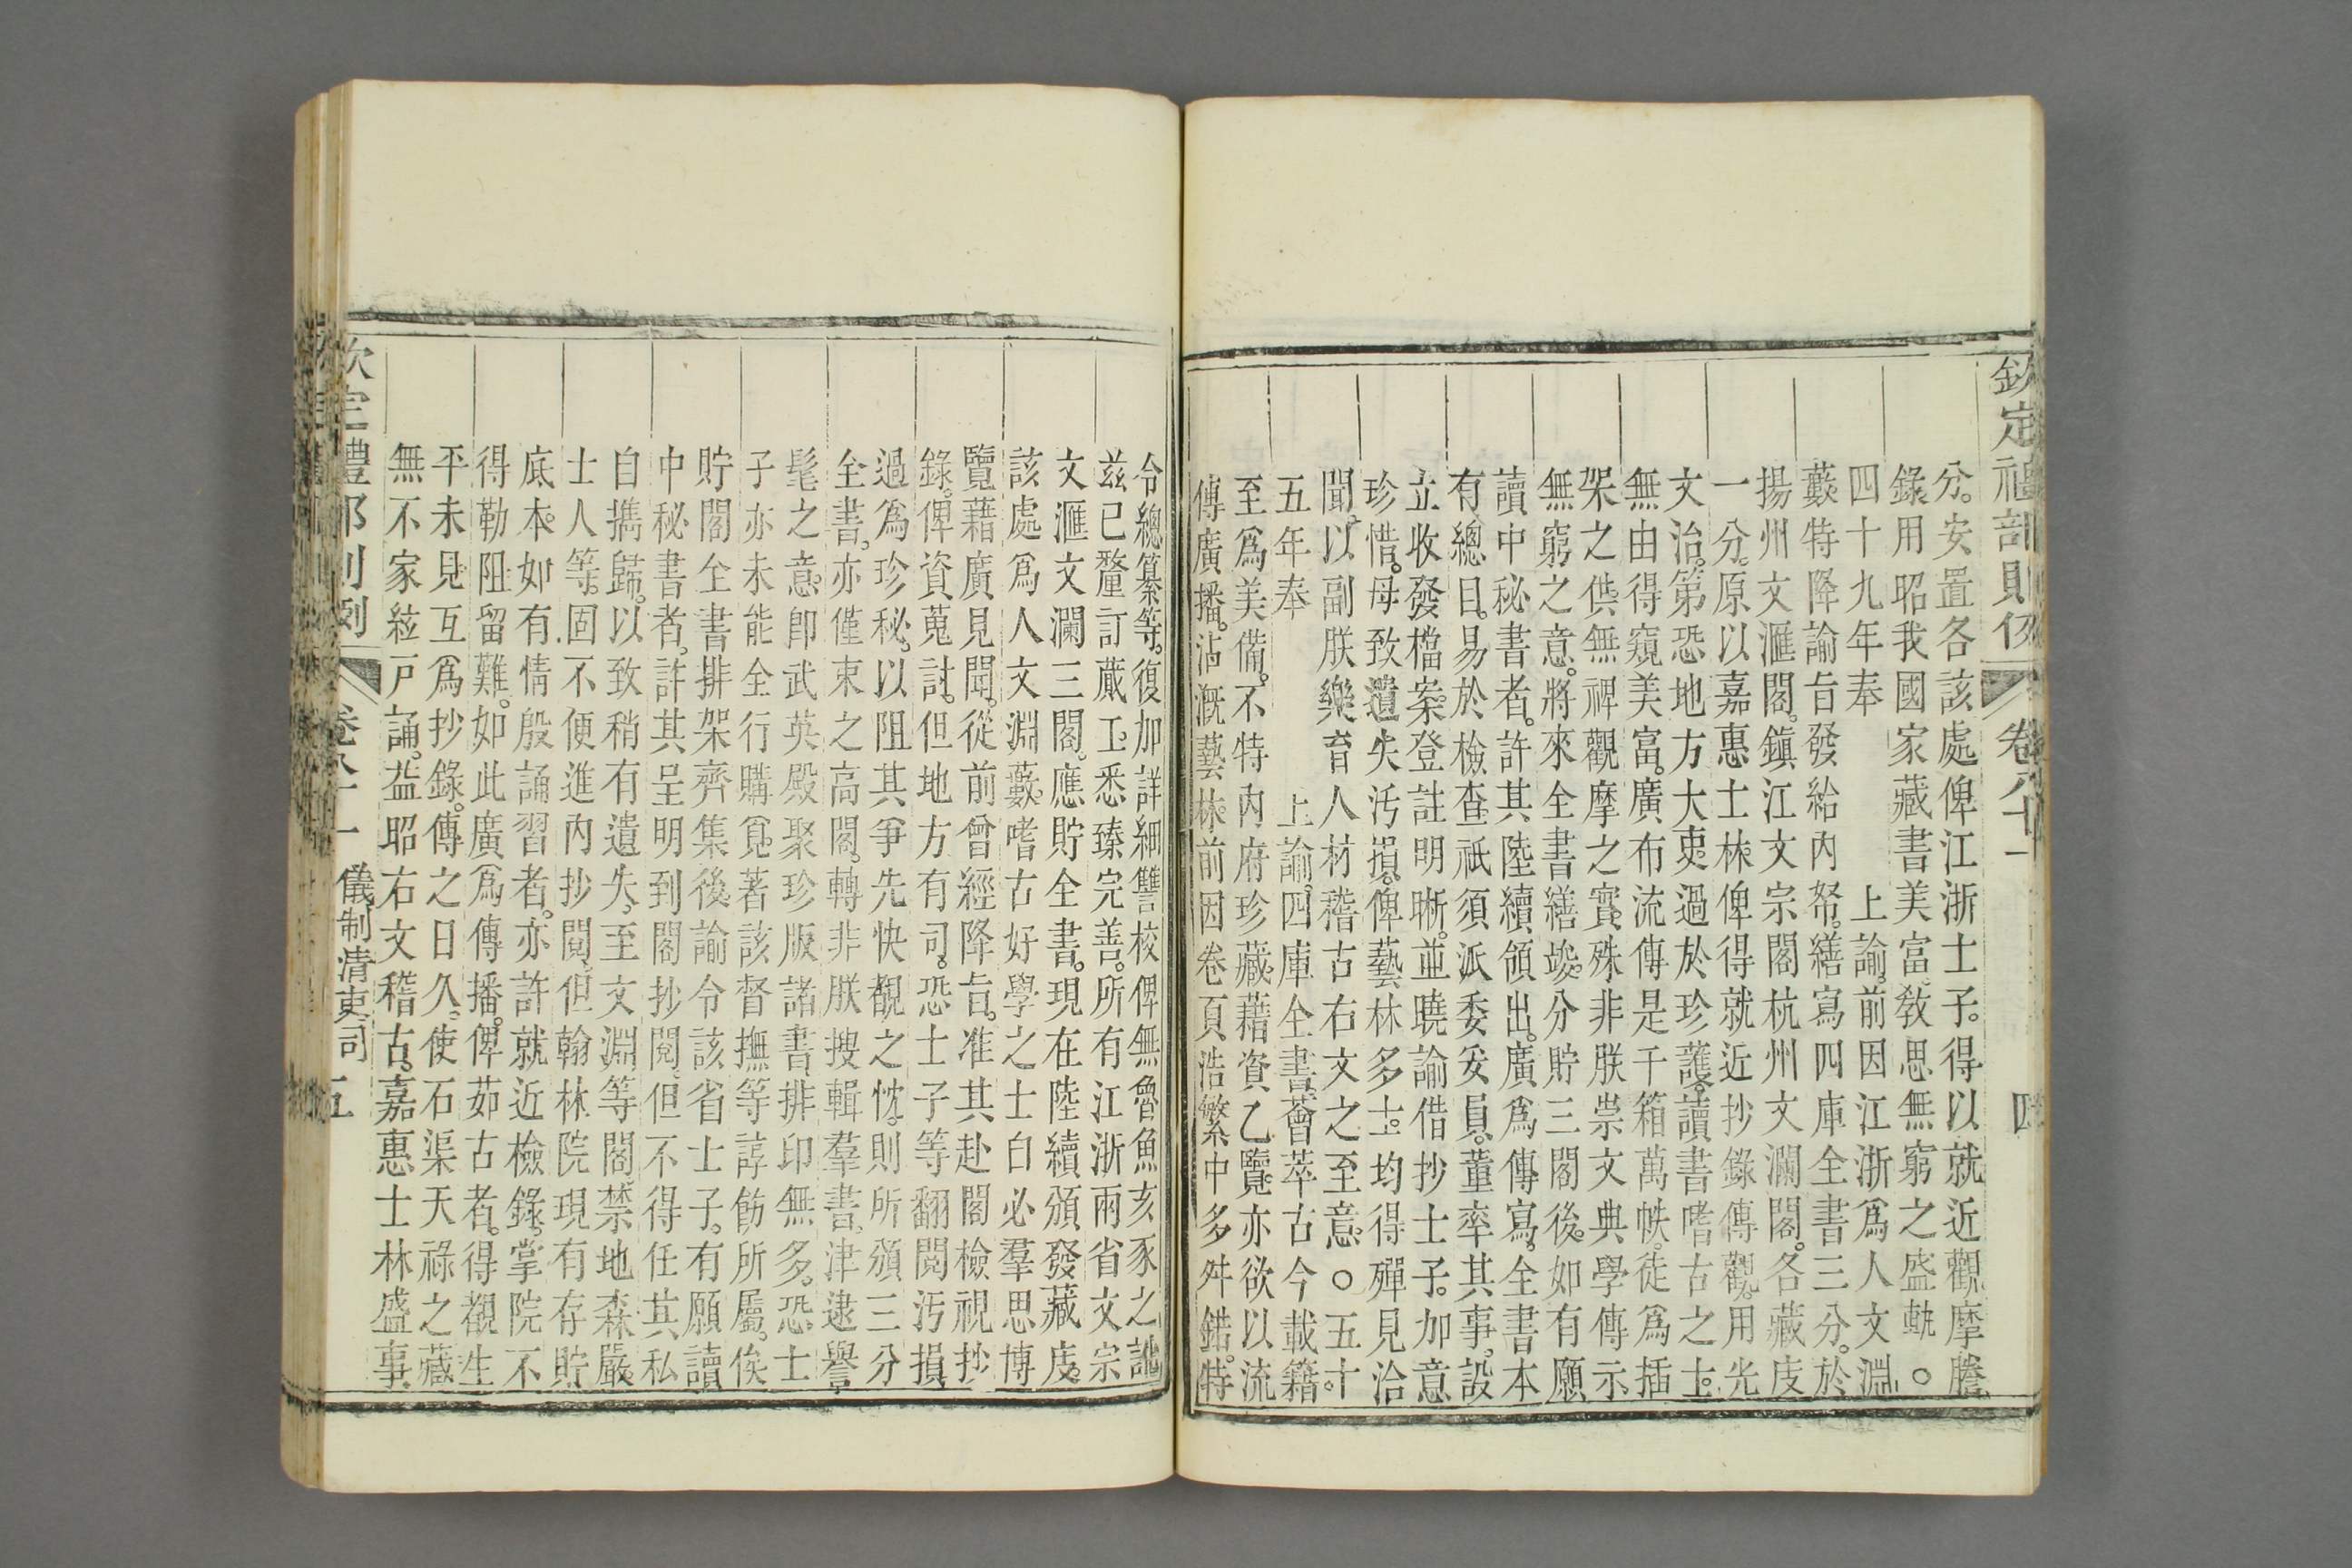 欽定禮部則例 卷八十一 四
分。安置各該處俾江浙士子。得以就近觀摩謄
錄。用昭我國家藏書美富。敎思無窮之盛軌。○
四十九年奉 上諭。前因江浙爲人文淵
藪。特降諭旨發給內帑。繕寫四庫全書三分。於
揚州文滙閣。鎭江文宗閣杭州文瀾閣。各藏庋
一分。原以嘉惠士林。俾得就近抄錄傳觀。用光
文治。第恐地方大吏。過於珍護。讀書嗜古之士。
無由得窺美富。廣布流傳是千箱萬帙。徒爲插
架之供無裨觀摩之實。殊非朕崇文典學傳示
無窮之意。將來全書繕竣。分貯三閣後。如有願
讀中秘書者。許其陸續領出。廣爲傳寫。全書本
有總目。易於檢查。祇須派委妥員。董率其事。設
立收發檔案。登註明晰。並曉諭借抄士子。加意
珍惜。毋致遺失污損。俾藝林多士。均得殫見洽
聞。以副朕樂育人材稽古右文之至意。○五十
五年奉 上諭。四庫全書。薈萃古今載籍。
至爲美備。不特內府珍藏。藉資乙覽。亦欲以流
傳廣播。沾漑藝林。前因卷頁浩繁中多舛錯。特
令總纂等。復加詳細讐校俾無魯魚亥豕之訛
茲已釐訂蕆工。悉臻完善。所有江浙兩省文宗
文滙文瀾三閣。應貯全書。現在陸續頒發藏庋。
該處爲人文淵藪。嗜古好學之士自必羣思博
覽藉廣見聞。從前曾經降旨。准其赴閣檢視抄
錄。俾資蒐討。但地方有司。恐士子等翻閱污損
過爲珍秘。以阻其爭先快覩之忱。則所頒三分
全書。亦僅束之高閣。轉非朕搜輯羣書。津逮譽
髦之意。卽武英殿聚珍版諸書。排印無多。恐士
子亦未能全行購覓。著該督撫等諄飭所屬。俟
貯閣全書排架齊集後。諭令該省士子。有願讀
中秘書者。許其呈明到閣抄閱。但不得任其私
自攜歸。以致稍有遺失。至文淵等閣。禁地森嚴
士人等。固不便進內抄閱。但翰林院現有存貯
底本。如有情殷誦習者。亦許就近檢錄。掌院不
得勒阻留難。如此廣爲傳播。俾茹古者。得覩生
平未見。互爲抄錄。傳之日久。使石渠天祿之藏
無不家絃戸誦。益昭右文稽古。嘉惠士林盛事。
欽定禮部則例 卷八十一 儀制淸吏司 五